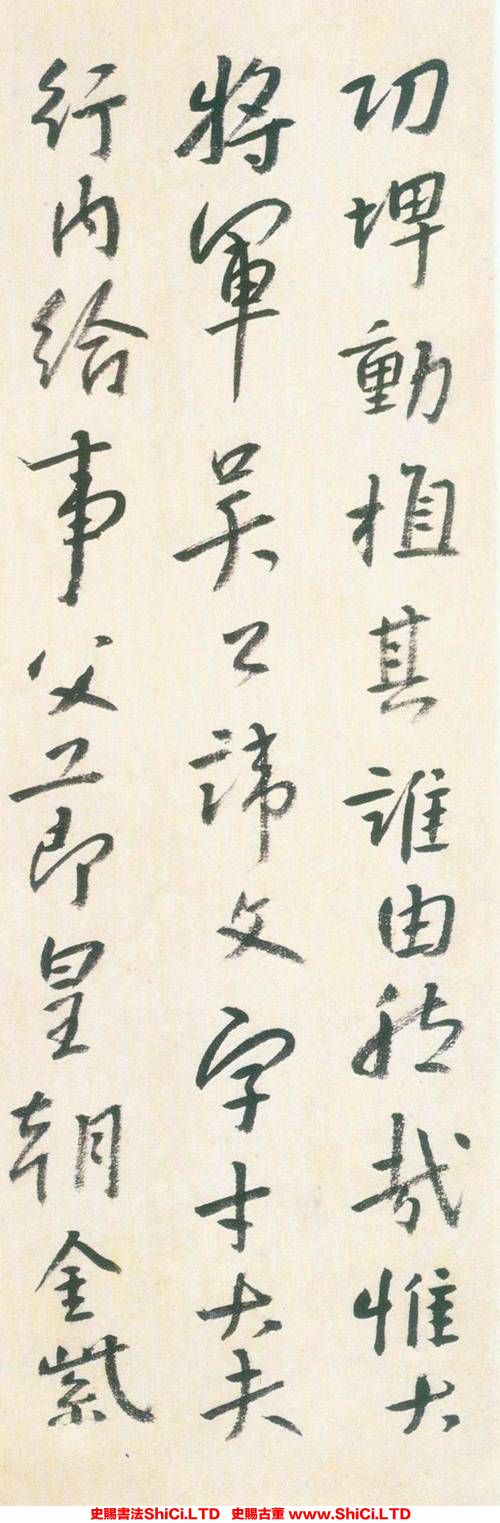 功埤動植其誰由然哉惟大
將軍吳公諱文字才大夫
行內給事父工即皇朝金紫
史賜書法ShiCi.LTD 史賜古董 www.ShiCi.LTD